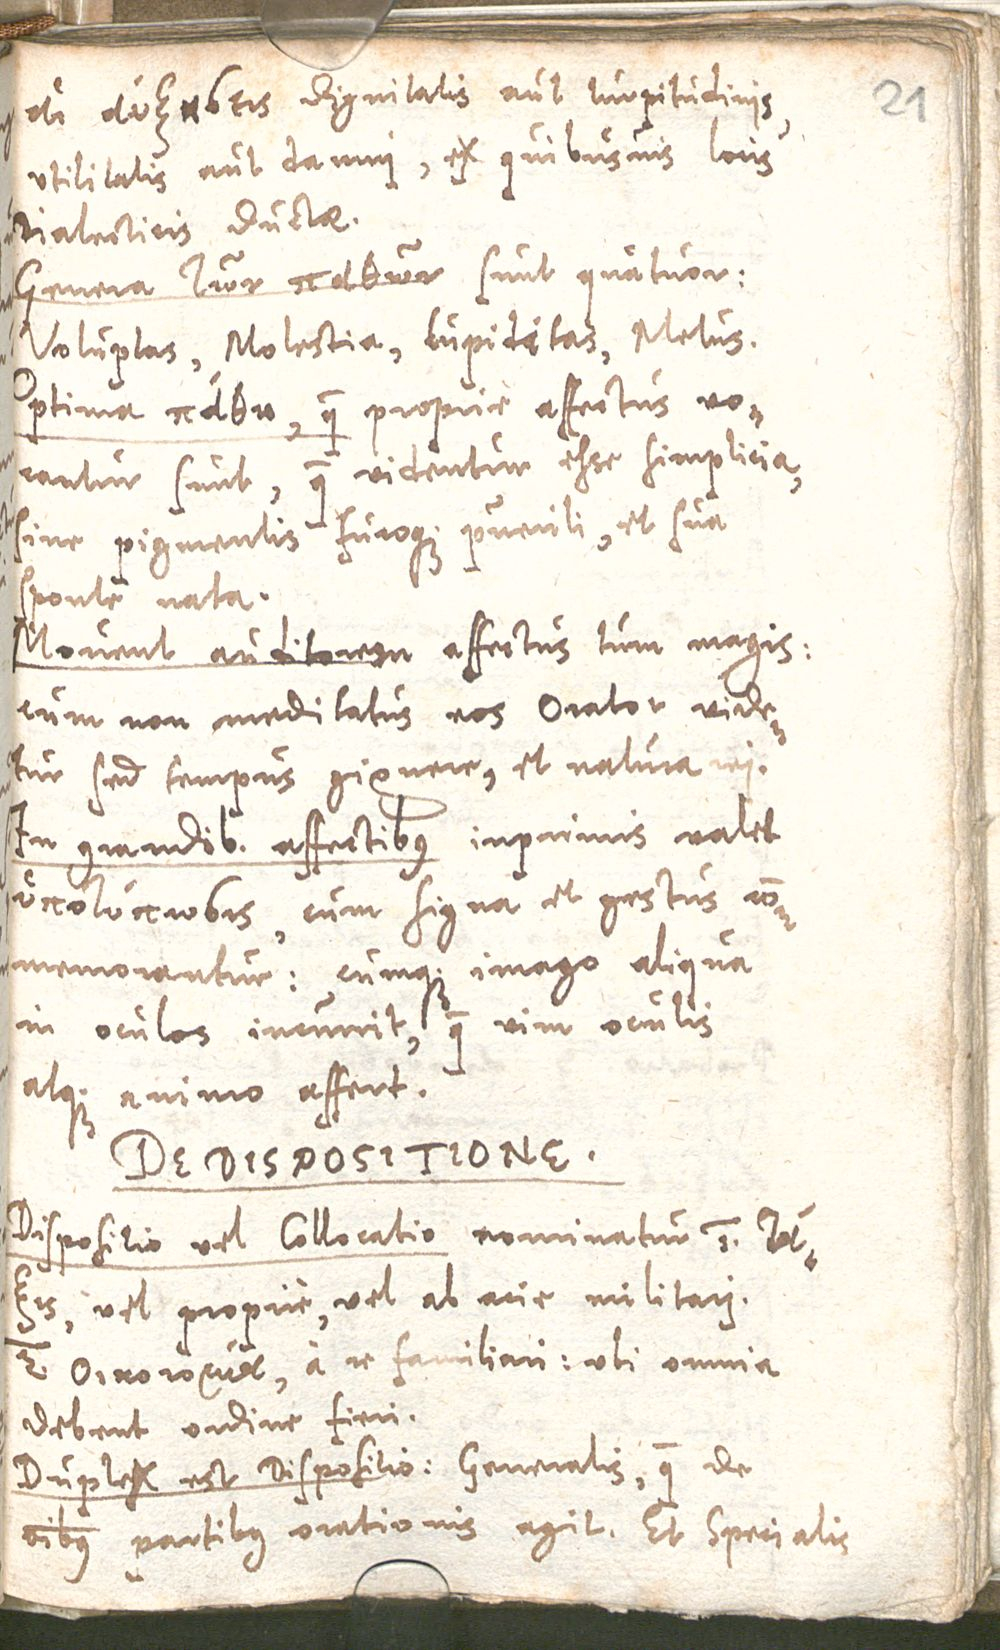 21
αἱ αὐξήσεις dignitatis aut turpitudinis,
vtilitatis aut damnj, ex quibusuis locis
dialecticis ductæ.
Genera τῶν παθῶν sunt quatuor:
Voluptas, Molestia, Cupiditas, Metus.
Optima πάθη, q̄ propriè affectus vo„
cantur sunt, q̄ videntur esse simplicia,
sine pigmentis fucoq; puerili, et sua
sponte nata.
Mouent auditorem affectus tum magis:
cum non meditatus eos Orator vide„
tur sed tempus gignere, et natura rej.
In grandib. affectibꝰ inprimis valet
ὑποτύπωσις, cum signa et gestus cō„
memorantur: cumq; imago aliqua
in oculos incurrit, q̄ vim oculis
atq; animo affert.
DE DISPOSITIONE.
Dispositio vel Collocatio nominatur 1. Τά„
ξις, vel propriè, vel ab acie militarj.
2 Οἰκονομία, à re familiari: vbi omnia
debent ordine fieri.
Duplex est Dispositio: Generalis, q̄ de
oībꝰ partibꝰ orationis agit. Et Specialis